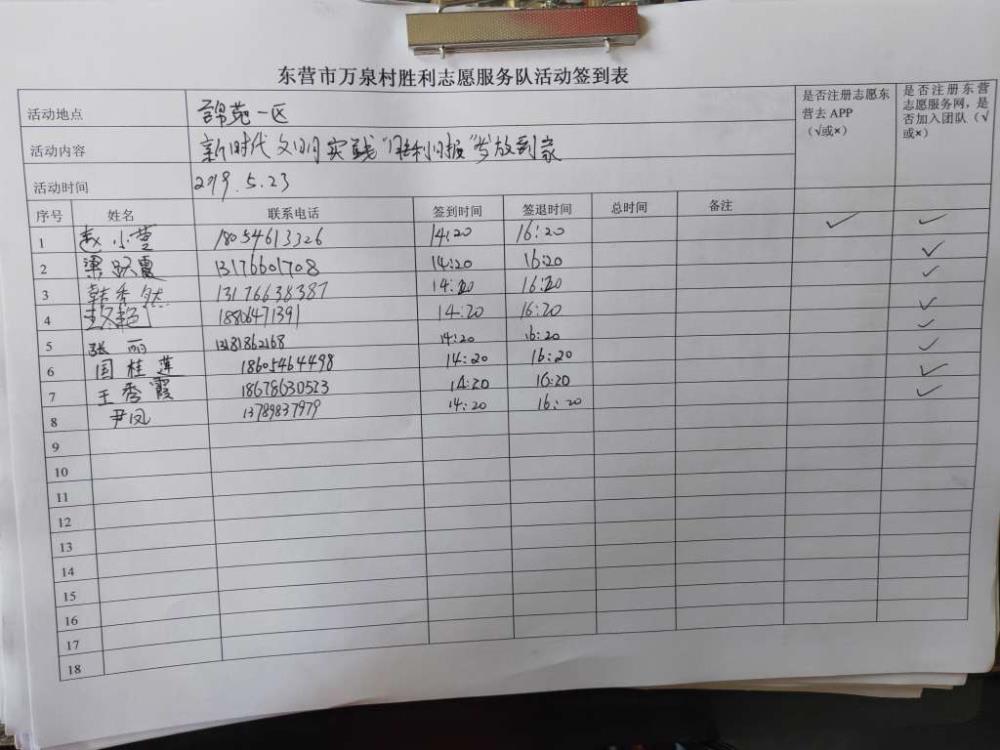 东营市万泉村胜利志愿服务队活动签到表
活动地点 锦苑一区 是否注册志愿东营去 APP（√或×） 是否注册东营志愿服务网，是否加入团队（√或×）
活动内容 新时代文明实践"胜利日报"发放到家
活动时间 2019.5.23
序号 姓名 联系电话 签到时间 签退时间 总时间 备注
1 赵小莹 18054613326 14:20 16:20 ✓ ✓
2 梁跃霞 13176601708 14:20 16:20 ✓
3 韩秀然 13176638387 14:20 16:20 ✓
4 18806471391 14:20 16:20 ✓
5 张丽 13181862168 14:20 16:20 ✓
6 国桂莲 18605464498 14:20 16:20 ✓
7 王秀霞 18678630523 14:20 16:20 ✓
8 尹凤 13789837979 14:20 16:20 ✓
9
10
11
12
13
14
15
16
17
18